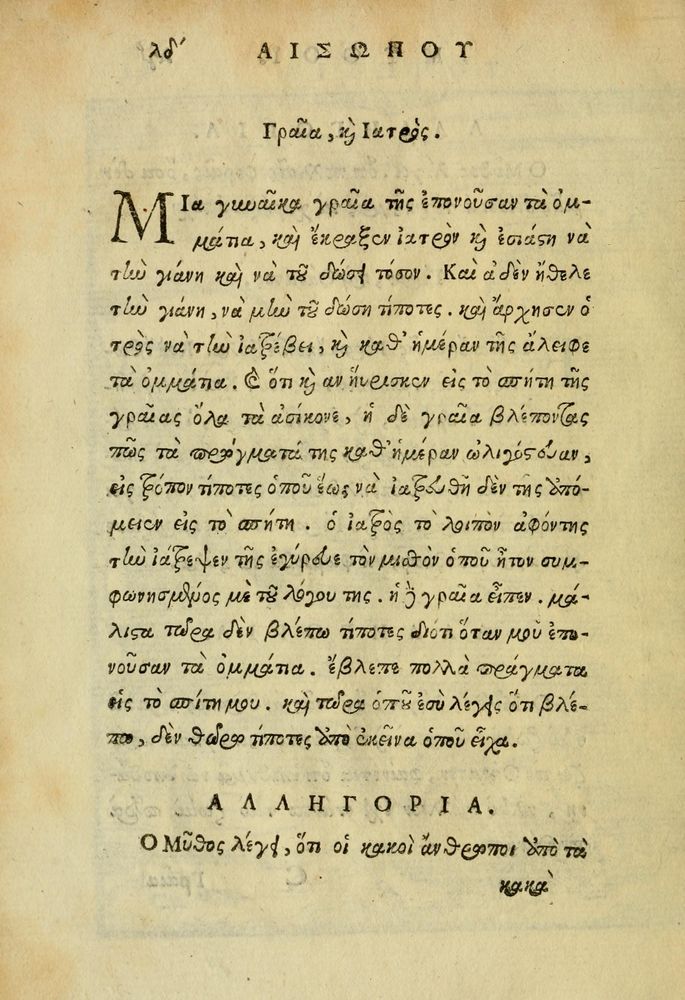 λδʹ ΑΙΣΩΠΟΥ
Γραῖα, κὶ Ιατρὸς.
ΜΙα γυναῖκα γραῖα τῆς ἐπονοῦσαν τὰ ὀμ-
μάτια, καὶ ἔκραξεν ἰατρὸν κὶ ἐσιάση νὰ
τὴν γιάνη καὶ νὰ τοῦ δώσει τόσον. Καὶ ἀ δὲν ἤθελε
τὴν γιάνη, νὰ μὴν τοῦ δώση τίποτες. καὶ ἄρχησεν ὁ
τρὸς νὰ τὴν ἰατρέβει, κὶ καθ' ἡμέραν τῆς ἄλειφε
τὰ ὀμμάτια. Ε ὅτι κὶ αν ἥυρισκεν εἰς τὸ σπήτη τῆς
γραῖας ὅλα τὰ ἀσίκονε, ἡ δὲ γραῖα βλέποντας
πῶς τὰ πράγματά της καθ' ἡμέραν ὠλιγόστευαν,
εἰς τρόπον τίποτες ὁποῦ ἕως νὰ ἰατρευθῆ δὲν τῆς ἀπό-
μεινεν εἰς τὸ σπήτη. ὁ ἰατρὸς τὸ λοιπὸν ἀφόντης
τὴν ἰάτρεψεν τῆς ἐγύρευε τὸν μισθὸν ὁποῦ ἦτον συμ-
φωνησμένος μὲ τοῦ λόγου της. ἡ δὲ γραῖα εἶπεν. μά-
λιστα τώρα δὲν βλέπω τίποτες διότι ὅταν μοῦ ἐπο-
νοῦσαν τὰ ὀμμάτια. ἔβλεπε πολλὰ πράγματα
εἰς τὸ σπίτη μου. καὶ τώρα ὁποῦ ἐσὺ λέγεις ὅτι βλέ-
πω, δὲν θωρῶ τίποτες ἀπὸ ἐκεῖνα ὁποῦ εἶχα.
ΑΛΛΗΓΟΡΙΑ.
Ο Μῦθος λέγει, ὅτι οἱ κακοὶ ἄνθρωποι ἀπὸ τὰ
κακὰ